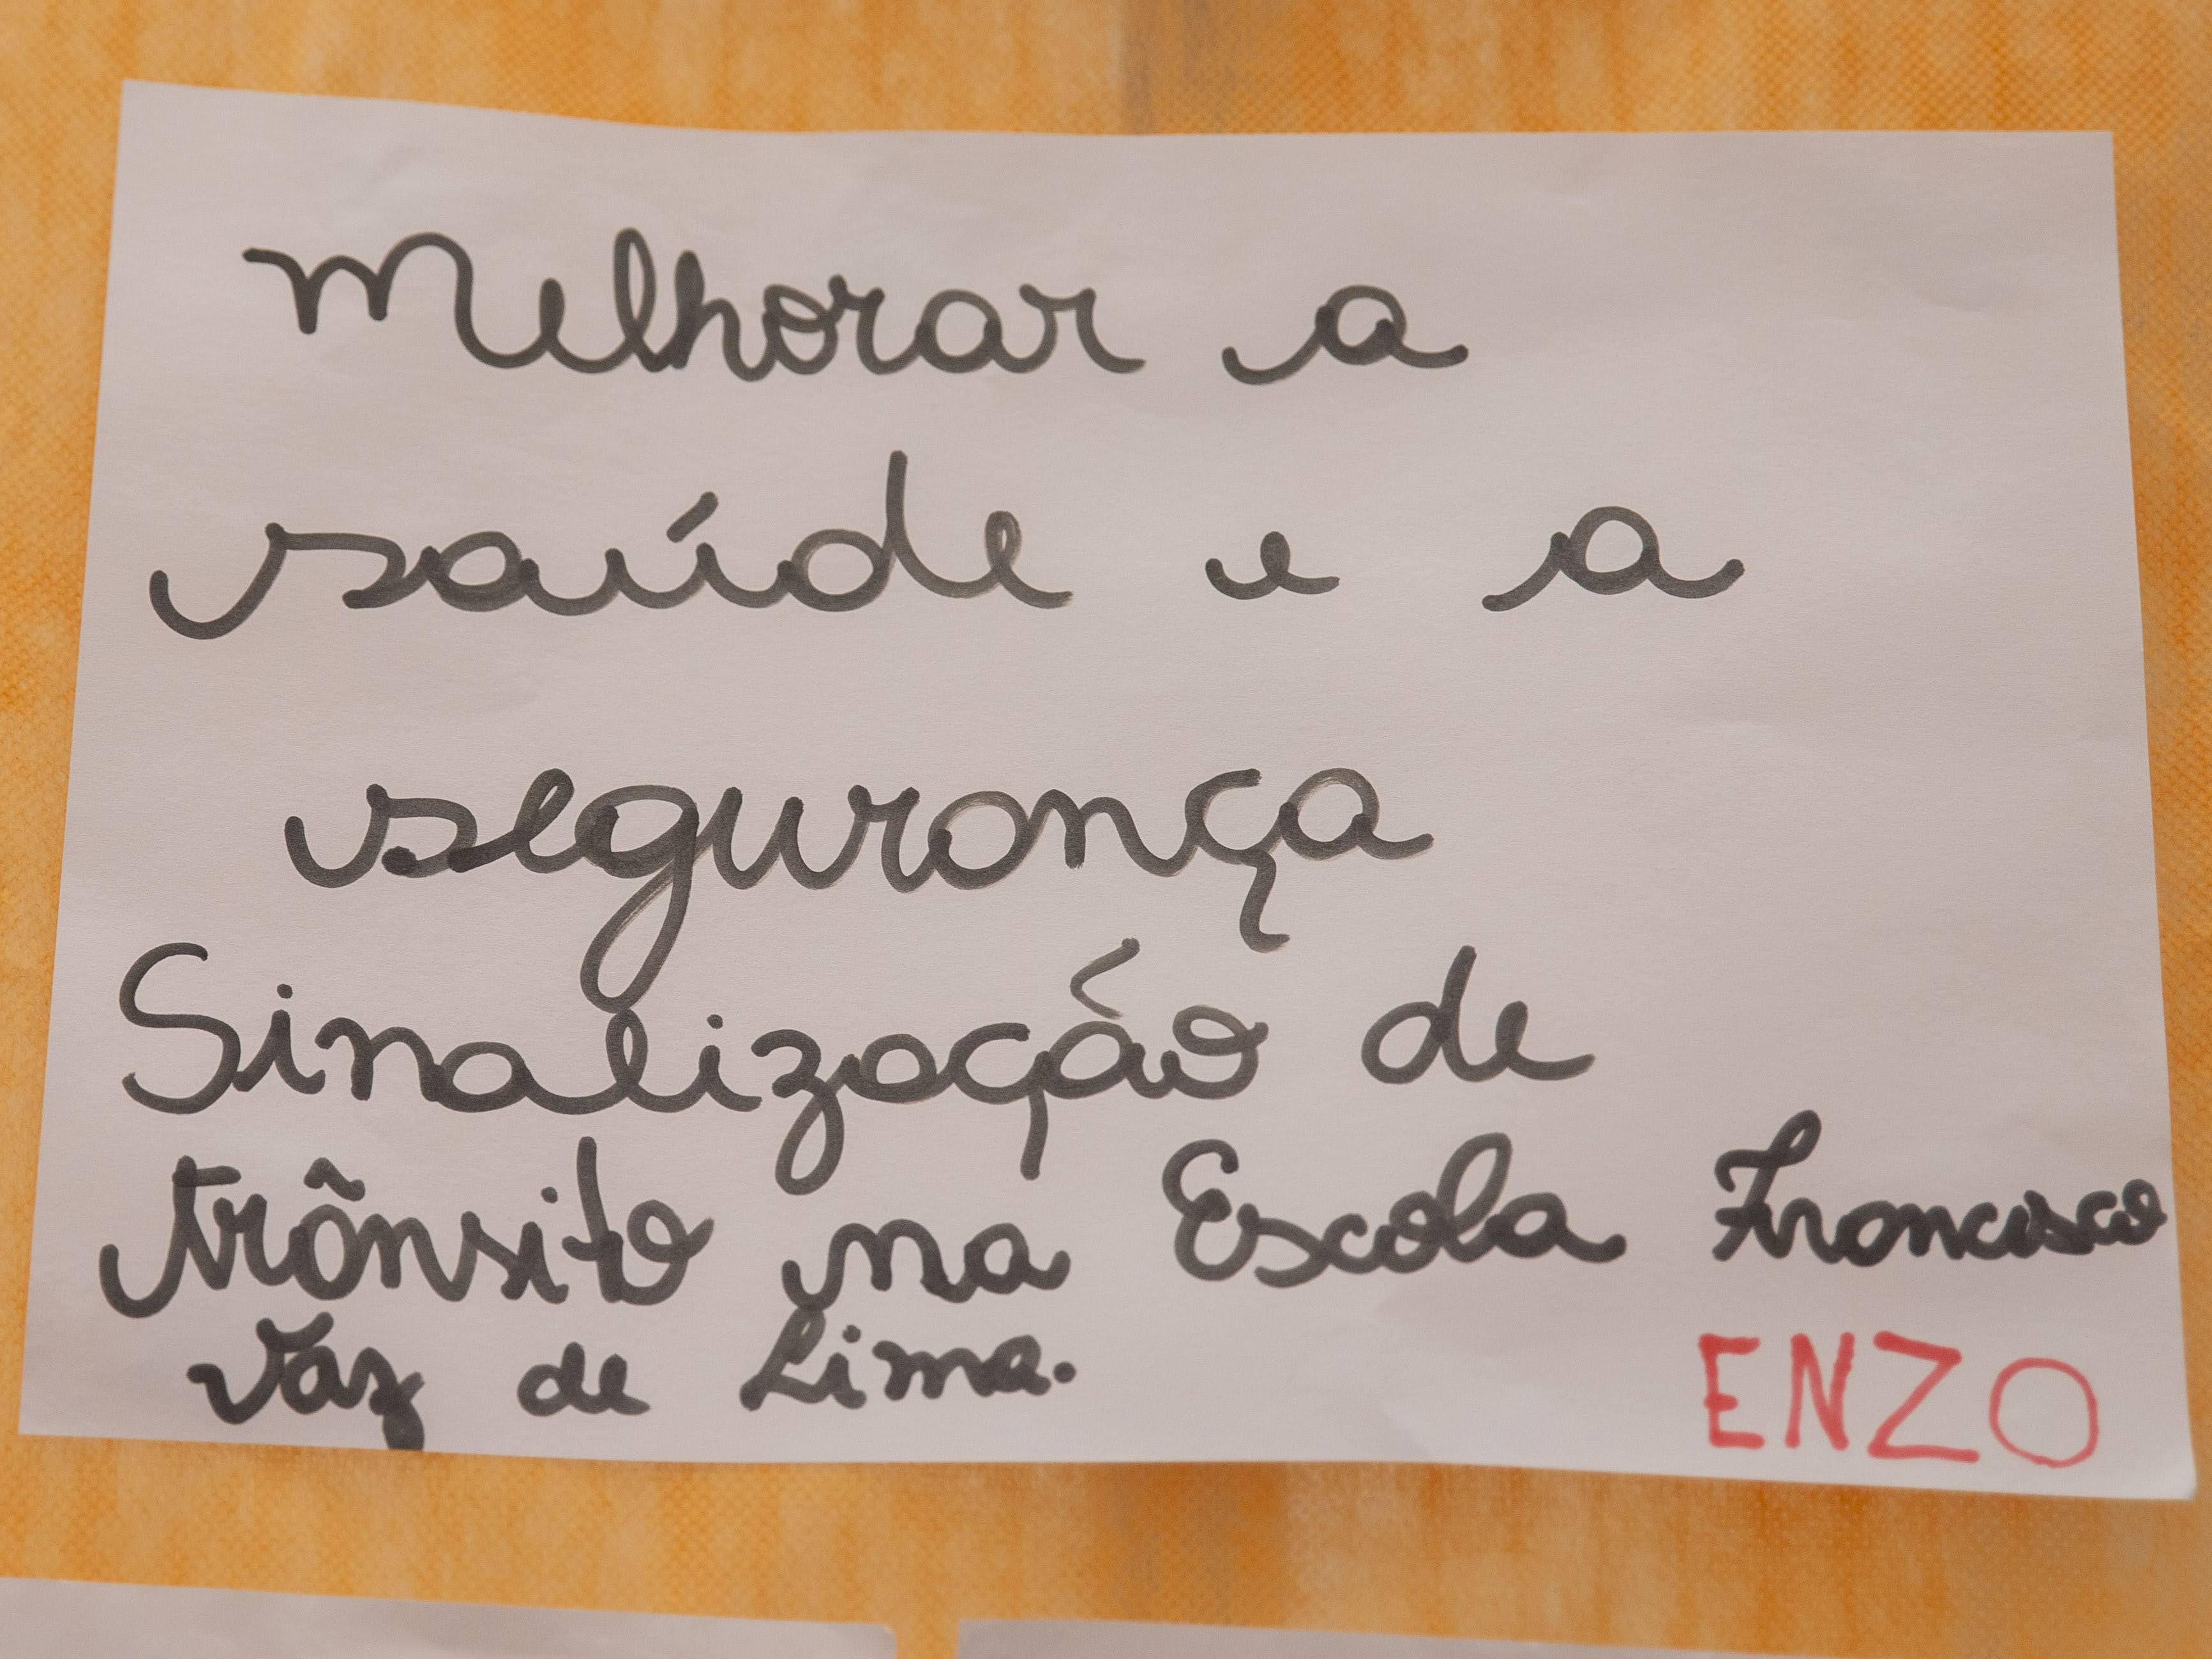 Melhorar a
saúde e a
segurança
Sinalização de
trânsito na Escola Francisco
Vaz de Lima.
ENZO